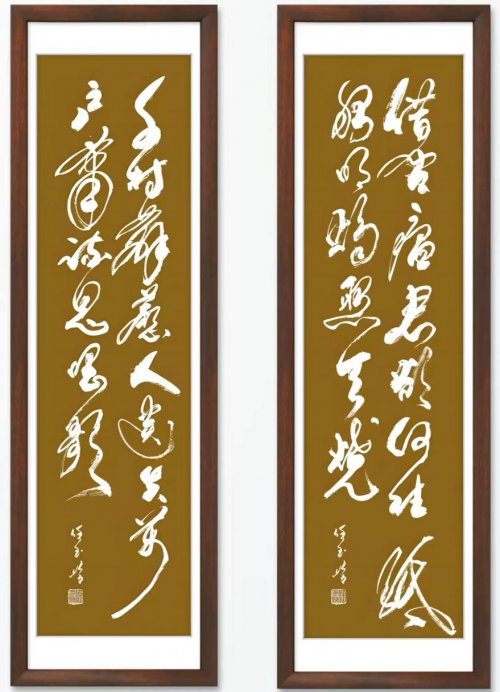 千村薜荔人遺矢萬
戶蕭疏鬼唱歌
借問瘟君欲何往紙
船明燭照天燒